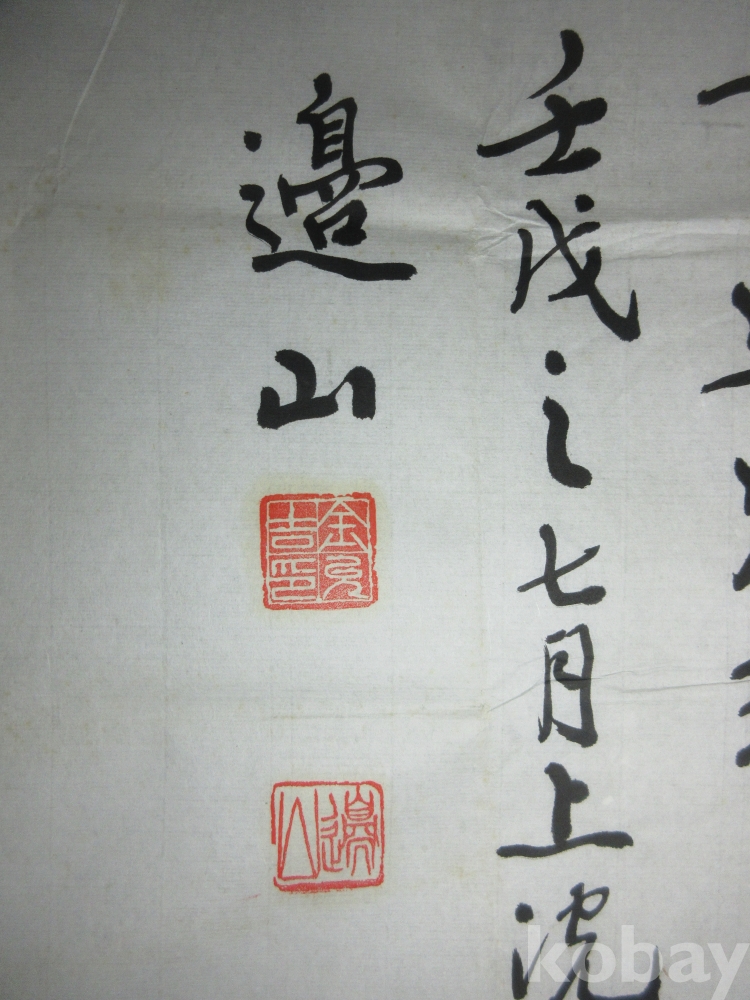 壬戌之七月上浣
邊山
金良吉印
邊山
kobay